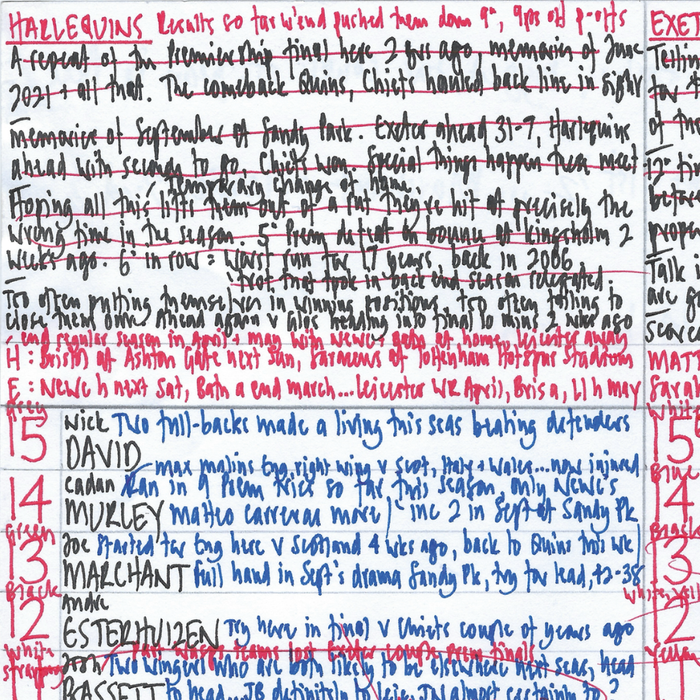 HARLEQUINS Results so far w'end pushed them down 9th, 9pts off p-offs
A repeat of the Premiership final here 2 yrs ago, memories of June
2021 + all that. The comeback Quins, Chiefs hauled back line in sight
Memories of September at Sandy Park. Exeter ahead 31-7, Harlequins
ahead with seconds to go, Chiefs won. Special things happen these meet
temporary change of home.
Hoping all this lifts them out of a rut they've hit at precisely the
wrong time in the season. 5th Prem defeat on bounce at Kingsholm 2
weeks ago. 6 in row = worst run for 17 years, back in 2006
that took in back end season relegated
Too often putting themselves in winning positions, too often failing to
close them out. Ahead again v Glos heading into final 10 mins 2 wks ago
- end regular season in April + May with Newc + Bath at home, Leicester away
H: Bristol at Ashton Gate next Sun, Saracens at Tottenham Hotspur Stadium
E: Newc h next Sat, Bath a end March... Leicester WR April, Bris a, LI h May
Grey
15 Nick Two full-backs made a living this seas beating defenders
DAVID
Max Malins Eng right wing v Scot, Italy + Wales... now injured
14 Cadan Ran in 9 Prem tries so far this season, only Newc's
MURLEY Matteo Carreras more inc 2 in Sept at Sandy Pk
Green
13 Joe Started for Eng here v Scotland 4 wks ago, back to Quins this wk
MARCHANT Full hand in Sept's drama Sandy Pk, try for lead, 42-38
Black
12 Andre
ESTERHUIZEN Try here in final v Chiefs couple of years ago
White Past Wasps teams lost Exeter couple Prem finals
strapping Josh Two wingers who are both likely to be elsewhere next seas, head
BASSETT to head. JB definitely to Leic, JN almost certain to ?
EXET
Tellin
for
of the
12
betwe
proper
Talk i
are
MATT
Sara
White
15
Blue
14
Black
13
White, Yell
12
Yellow